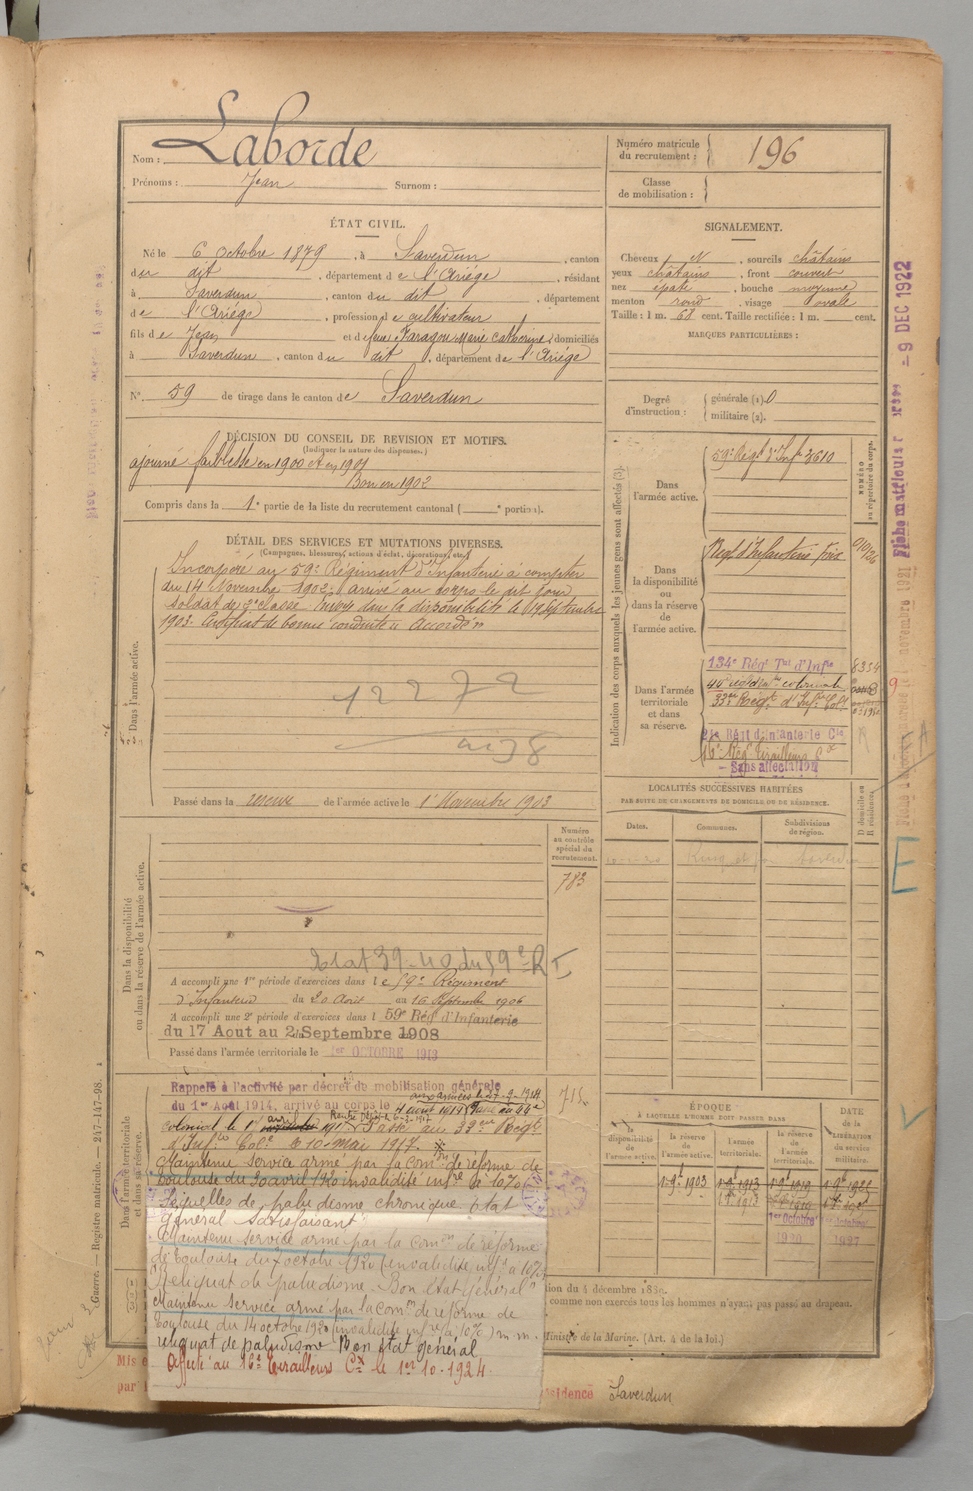 Nom : Laborde
Prénoms : Jean Surnom :
Numéro matricule du recrutement : 196
Classe de mobilisation :
ÉTAT CIVIL.
Né le 6 octobre 1879, à Saverdun, canton
du dit, département de l'Ariége, résidant
à Saverdun, canton du dit, département
de l'Ariége, profession de cultivateur
fils de Jean et de feue Faragou Marie Catherine, domiciliés
à Saverdun, canton du dit, département de l'Ariége
N° 59 de tirage dans le canton de Saverdun
SIGNALEMENT.
Cheveux N, sourcils châtains
yeux châtains, front couvert
nez épaté, bouche moyenne
menton rond, visage ovale
Taille : 1 m. 68 cent. Taille rectifiée : 1 m. cent.
MARQUES PARTICULIÈRES :
Degré d'instruction : générale (1) 0
militaire (2).
DÉCISION DU CONSEIL DE REVISION ET MOTIFS.
(Indiquer la nature des dispenses.)
ajourné faiblesse en 1900 et en 1901
Bon en 1902
Compris dans la 1e partie de la liste du recrutement cantonal ( e portion).
DÉTAIL DES SERVICES ET MUTATIONS DIVERSES.
(Campagnes, blessures, actions d'éclat, décorations, etc.)
Dans l'armée active.
Incorporé au 59e Régiment d'Infanterie à compter
du 14 Novembre 1902, arrivé au corps le dit jour
Soldat de 2e classe. Envoyé dans la disponibilité le 19 Septembre
1903. Certificat de bonne conduite "Accordé"
12272
Passé dans la réserve de l'armée active le 1er Novembre 1903
Indication des corps auxquels les jeunes gens sont affectés (3).
NUMÉRO au répertoire du corps.
Dans l'armée active.
59e Régt d'Infie 3610
Dans la disponibilité ou dans la réserve de l'armée active.
Régt d'Infanterie Foix
Dans l'armée territoriale et dans sa réserve.
134e Régt Tal d'Infie 8354
44e régt d'infie coloniale
33e Régt d'Infie Colle
21e Régt d'infanterie Cle
16e Régt Tirailleurs Cx
Sans affectation
LOCALITÉS SUCCESSIVES HABITÉES
PAR SUITE DE CHANGEMENTS DE DOMICILE OU DE RÉSIDENCE.
Dates. Communes. Subdivisions de région. D domicile ou R résidence.
Dans la disponibilité ou dans la réserve de l'armée active.
Numéro au contrôle spécial du recrutement.
783
A accompli une 1re période d'exercices dans le 59e Régiment
d'Infanterie du 20 Août au 16 Septembre 1906
A accompli une 2e période d'exercices dans l 59e Rég d'Infanterie
du 17 Aout au 2 Septembre 1908
Passé dans l'armée territoriale le 1er OCTOBRE 1913
Dans l'armée territoriale et dans sa réserve.
Rappelé à l'activité par décret de mobilisation générale
du 1er Août 1914, arrivé au corps le
4 août 1914 Passé au 44e
colonial le 1er
Passé au 33e Régt
d'Infie Cole le 10 mai 1917
Maintenu service armé par la Comon de réforme de
Toulouse du 30 avril 1920 invalidité infre à 10%
Séquelles de paludisme chronique État
général satisfaisant
Maintenu service armé par la Comon de réforme
de Toulouse du 7 octobre 1920 (invalidité infre à 10%)
"Reliquat de paludisme. Bon état général"
Maintenu service armé par la Comon de réforme de
Toulouse du 14 octobre 1920 (invalidité infre à 10%) m. m.
reliquat de paludisme Bon état général
Affecté au 16e Tirailleurs Cx le 1er 10-1924
ÉPOQUE
À LAQUELLE L'HOMME DOIT PASSER DANS
la disponibilité de l'armée active. la réserve de l'armée active. l'armée territoriale. la réserve de l'armée territoriale.
DATE de la LIBÉRATION du service militaire.
1er 9bre 1903
1er Octobre
comme non exercés tous les hommes n'ayant pas passé au drapeau.
Ministre de la Marine. (Art. 4 de la loi.)
Saverdun
Guerre. — Registre matricule. — 247-147-98.
- 9 DEC 1922
E